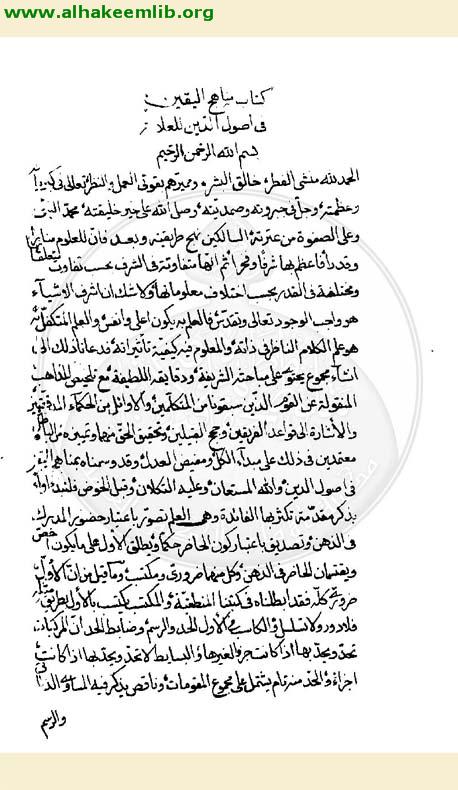 www.alhakeemlib.org
كتاب مناهج اليقين
فى اصول الدين للعلا
بسم الله الرحمن الرحيم
الحمد لله منشئ الفطر، خالق البشر، ومميزهم بقوتى العمل والنظر تعالى فى كبريا
وعظمته وجل فى جبروته وصمديته وصلى الله على خير خليقته محمد النبى
وعلى الصفوة من عترته السالكين نهج طريقته وبعد فان للعلوم
وقدرا فاعظم بها شرفا وفخرا ثم انها متفاوتة فى الشرف بحسب تفاوت
ومختلفة فى القدر بحسب اختلاف معلوماتها ولا شك ان اشرف الاشياء
هو واجب الوجود تعالى وتقدس فالعلم به يكون اعلى وانفس والعلم المتكفل به
هو علم الكلام الناظر فى ذاته والمعلوم فيه كيفية تأثيراته فدعانا ذلك الى
انشاء مجموع يحتوى على مباحثه الشريفة ودقايقه اللطيفة مع تلخيص المذاهب
المنقولة عن القوم الذين سبقونا من المتكلمين والاوائل من الحكماء
والاشارة الى قواعد الفريقين وحجج القبيلين وتحقيق الحق منها وتمييزه من
معتمدين فى ذلك على مبدأ الكل ومفيض العدل وقد وسمناه بمناهج اليقين
فى اصول الدين والله المستعان وعليه التكلان وقبل الخوض فلنبدأ
بذكر مقدمة تكثر بها الفائدة وهى العلم تصور باعتبار حضور المدرك
فى الذهن وتصديق باعتبار كون الحاضر حكما ويطلق الاول على ما يكون اخص
ويقتسمان الحاضر فى الذهن وكل منهما ضرورى ومكتسب وما قيل من ان الاول
ضرورى كله فقد ابطلناه فى كتبنا المنطقية والمكتسب يكتسب بالاول بطريق
فلا دور ولا تسلسل والكاسب فى الاول الحد والرسم وضابط الحد ان المركبات
تحد ويحد بها اذا كانت جزءا لغيرها والبسايط لا تحد ويحد بها اذا كانت
اجزاء والحد منه تام يشتمل على مجموع المقومات وناقص يذكر فيه المساوى
والرسم